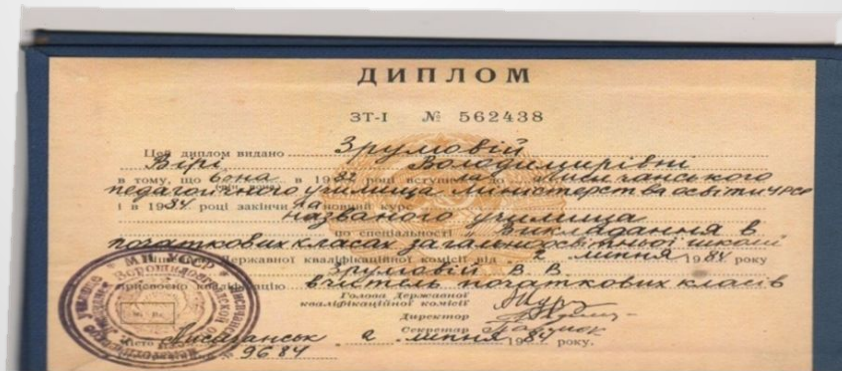 ДИПЛОМ
ЗТ-I № 562438
Цей диплом видано Зрумовій
Вірі Володимирівні
в тому, що вона в 1982 році вступила до Лисичанського
педагогічного училища Министерства освіти УРСР
і в 1984 році закінчила повний курс
названого училища
по спеціальності Викладання в
початкових класах загальноосвітньої школи
Державної кваліфікаційної комісії від 2 липня 1984 року
Зрумовій В. В.
присвоєно кваліфікацію вчитель початкових класів
Голова Державної
кваліфікаційної комісії
Директор
Секретар
Місто Лисичанськ 2 липня 1984 року.
9684